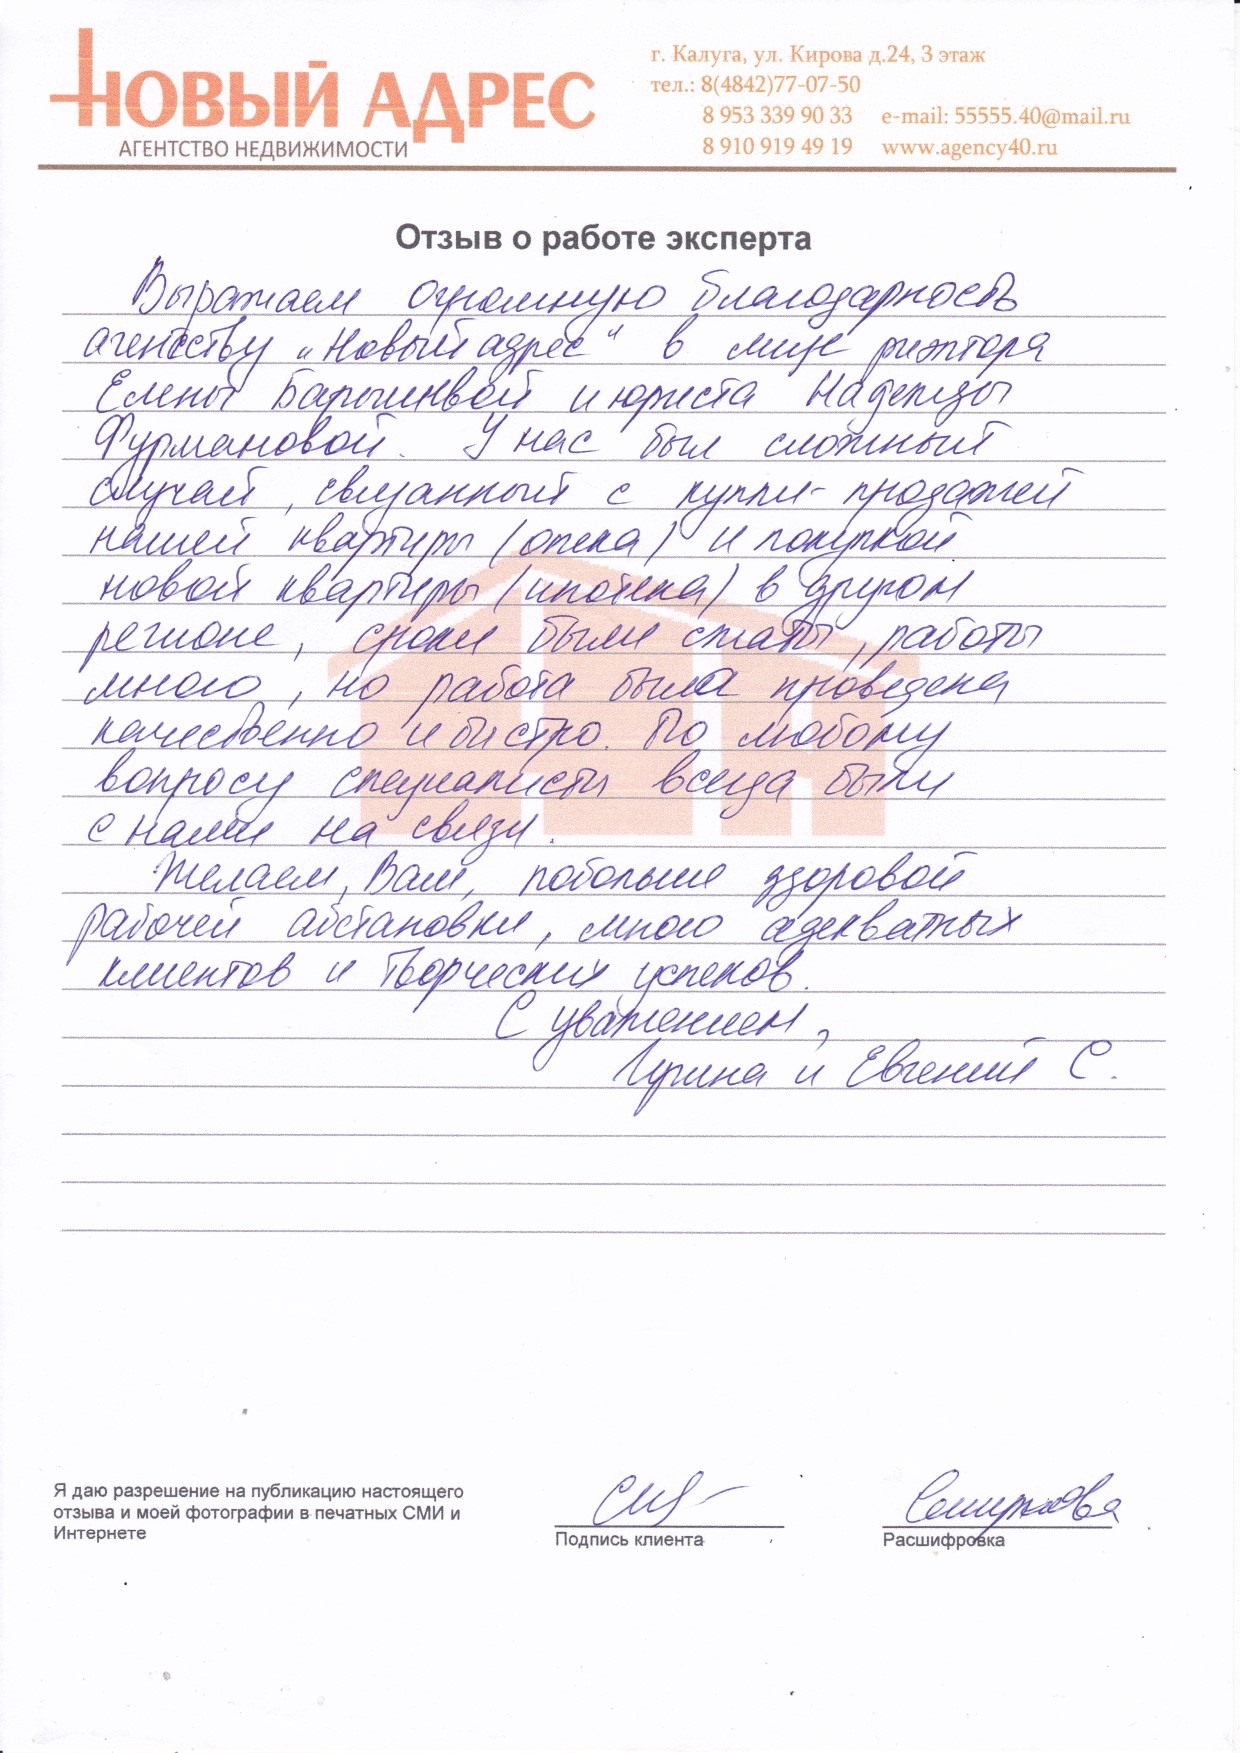 НОВЫЙ АДРЕС
АГЕНТСТВО НЕДВИЖИМОСТИ
г. Калуга, ул. Кирова д.24, 3 этаж
тел.: 8(4842)77-07-50
8 953 339 90 33 e-mail: 55555.40@mail.ru
8 910 919 49 19 www.agency40.ru
Отзыв о работе эксперта
Выражаем огромную благодарность
агентству „Новый адрес" в лице риэлтора
Елены и юриста Надежды
Фурмановой. У нас был сложный
случай, связанный с купли-продажей
нашей квартиры (опека) и покупкой
новой квартиры (ипотека) в другом
регионе, сроки были сжаты, работы
много, но работа была проведена
качественно и быстро. По любому
вопросу специалисты всегда были
с нами на связи.
Желаем, Вам, побольше здоровой
рабочей абстановки, много адекватных
клиентов и творческих успехов.
С уважением,
Ирина и Евгений С.
Я даю разрешение на публикацию настоящего
отзыва и моей фотографии в печатных СМИ и
Интернете
Подпись клиента
Расшифровка